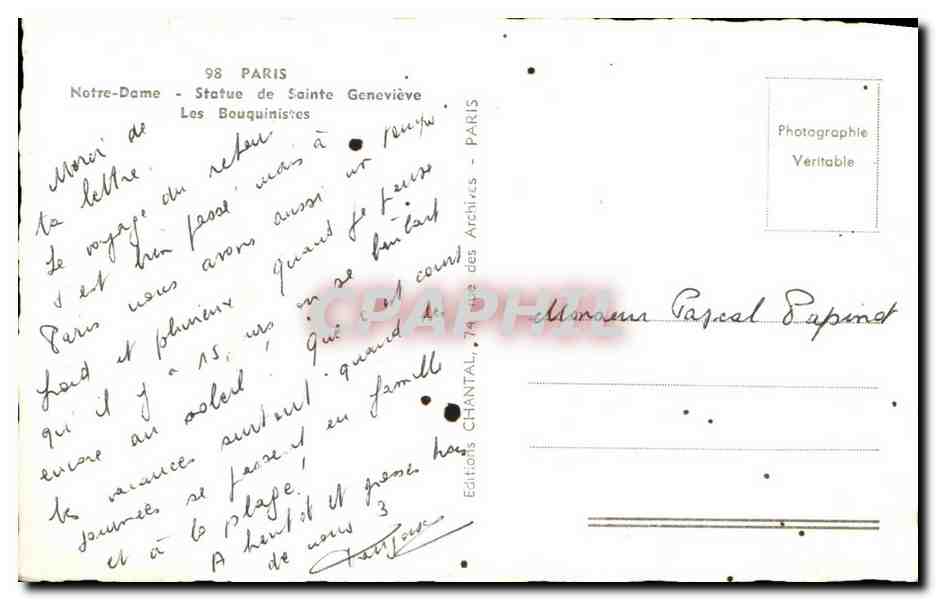 98 PARIS
Notre-Dame - Statue de Sainte Geneviève
Les Bouquinistes
Merci de
ta lettre.
Le voyage du retour
s'est bien passé mais à
Paris nous avons aussi un temps
froid et pluvieux. Quand je pense
qu'il y a 15 jours on se
encore au soleil! Que c'est court
les vacances surtout quand les
journées se passent en famille
et à la plage!
A bientôt et grosses bises
de nous 3
Editions CHANTAL, 74 rue des Archives - PARIS
Photographie
Véritable
Monsieur Pascal Papinot
CPAPHIL